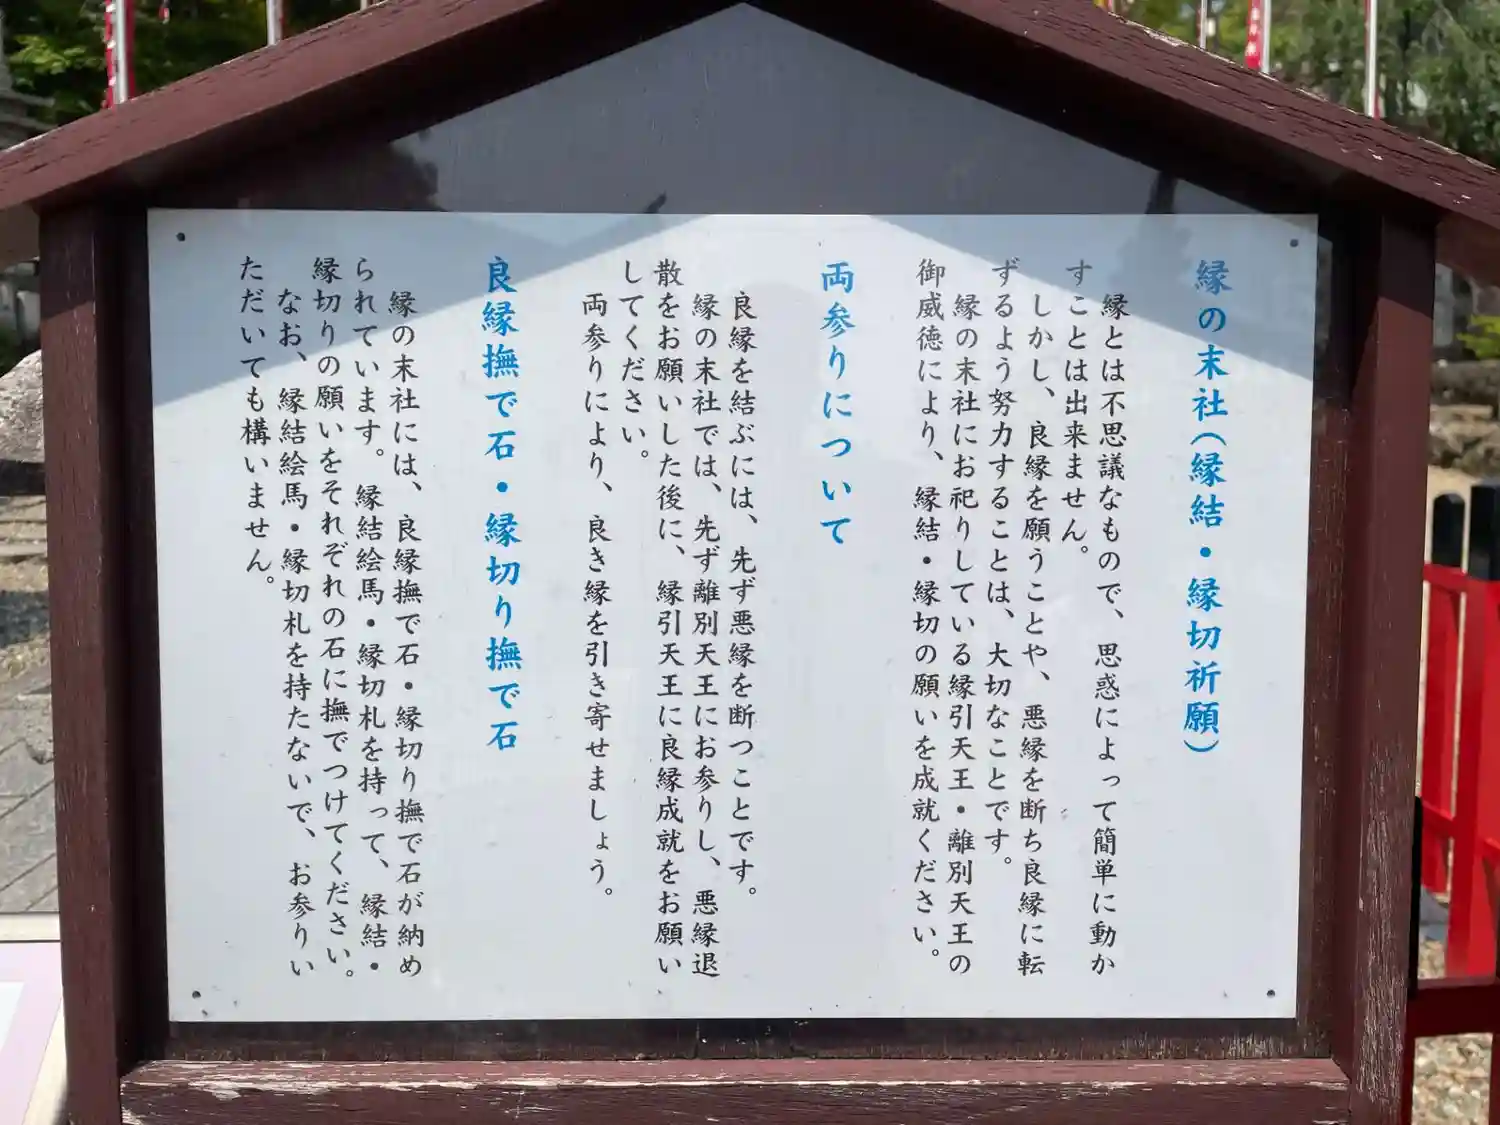 縁の末社(縁結・縁切祈願)
縁とは不思議なもので、思惑によって簡単に動か
すことは出来ません。
しかし、良縁を願うことや、悪縁を断ち良縁に転
ずるよう努力することは、大切なことです。
縁の末社にお祀りしている縁引天王・離別天王の
御威徳により、縁結・縁切の願いを成就ください。
両参りについて
良縁を結ぶには、先ず悪縁を断つことです。
縁の末社では、先ず離別天王にお参りし、悪縁退
散をお願いした後に、縁引天王に良縁成就をお願い
してください。
両参りにより、良き縁を引き寄せましょう。
良縁撫で石・縁切り撫で石
縁の末社には、良縁撫で石・縁切り撫で石が納め
られています。縁結絵馬・縁切札を持って、縁結・
縁切りの願いをそれぞれの石に撫でつけてください。
なお、縁結絵馬・縁切札を持たないで、お参りい
ただいても構いません。